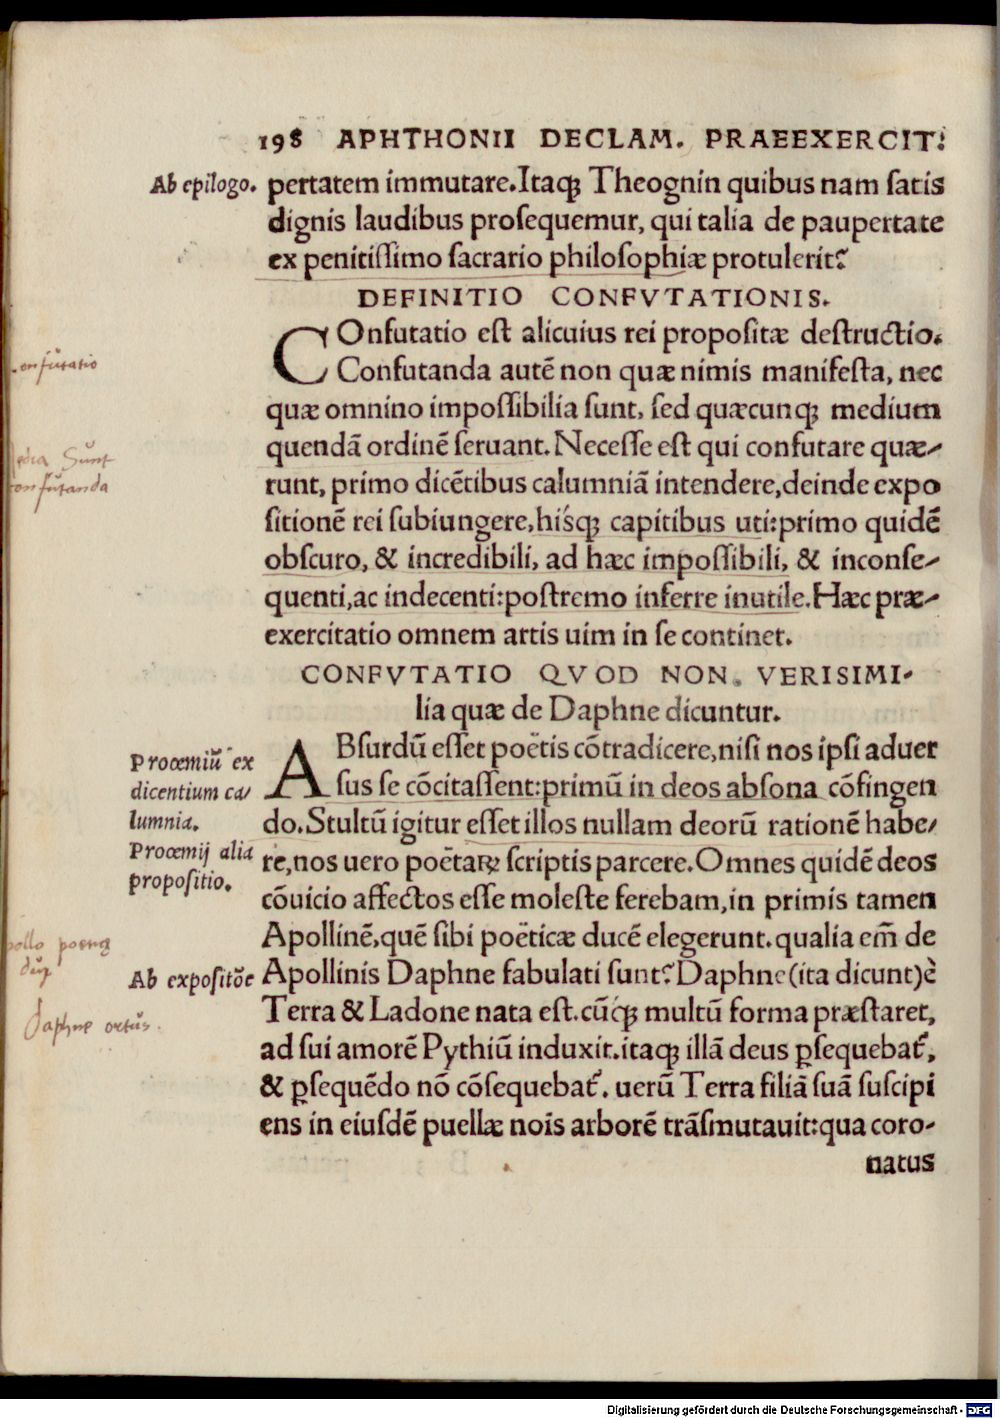 198 APHTHONII DECLAM. PRAEEXERCIT:
Ab epilogo.
pertatem immutare.Itaqꝫ Theognin quibus nam satis
dignis laudibus prosequemur, qui talia de paupertate
ex penitissimo sacrario philosophiæ protulerit?
DEFINITIO CONFVTATIONIS.
COnfutatio est alicuius rei propositæ destructio.
Confutanda autē non quæ nimis manifesta, nec
quæ omnino impossibilia sunt, sed quæcunqꝫ medium
quendā ordinē seruant. Necesse est qui confutare quæ-
runt, primo dicētibus calumniā intendere,deinde expo
sitionē rei subiungere,hisqꝫ capitibus uti:primo quidē
obscuro, & incredibili, ad hæc impossibili, & inconse-
quenti,ac indecenti:postremo inferre inutile.Hæc præ-
exercitatio omnem artis uim in se continet.
onfutatio
Sunt
onfutanda
CONFVTATIO QVOD NON. VERISIMI-
lia quæ de Daphne dicuntur.
Procemiū ex
dicentium ca/
lumnia.
Procemij alia
propositio.
ABsurdū esset poëtis cōtradicere,nisi nos ipsi aduer
sus se cōcitassent:primū in deos absona cōfingen
do.Stultū igitur esset illos nullam deorū rationē habe/
re,nos uero poëtaꝝ scriptis parcere.Omnes quidē deos
cōuicio affectos esse moleste ferebam,in primis tamen
Apollinē,quē sibi poëticæ ducē elegerunt.qualia em̄ de
Ab expositōe
Apollinis Daphne fabulati sunt?Daphne(ita dicunt)è
Terra & Ladone nata est.cūqꝫ multū forma præstaret,
ad sui amorē Pythiū induxit.itaqꝫ illā deus ꝑsequebat᷑,
& ꝑsequēdo nō cōsequebat᷑. uerū Terra filiā suā suscipi
ens in eiusdē puellæ nois arborē trāsmutauit:qua coro-
natus
Daphne ortus.
Digitalisierung gefördert durch die Deutsche Forschungsgemeinschaft - DFG